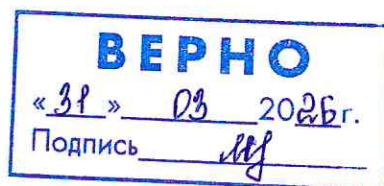 ВЕРНО
«31» 03 2026г.
Подпись